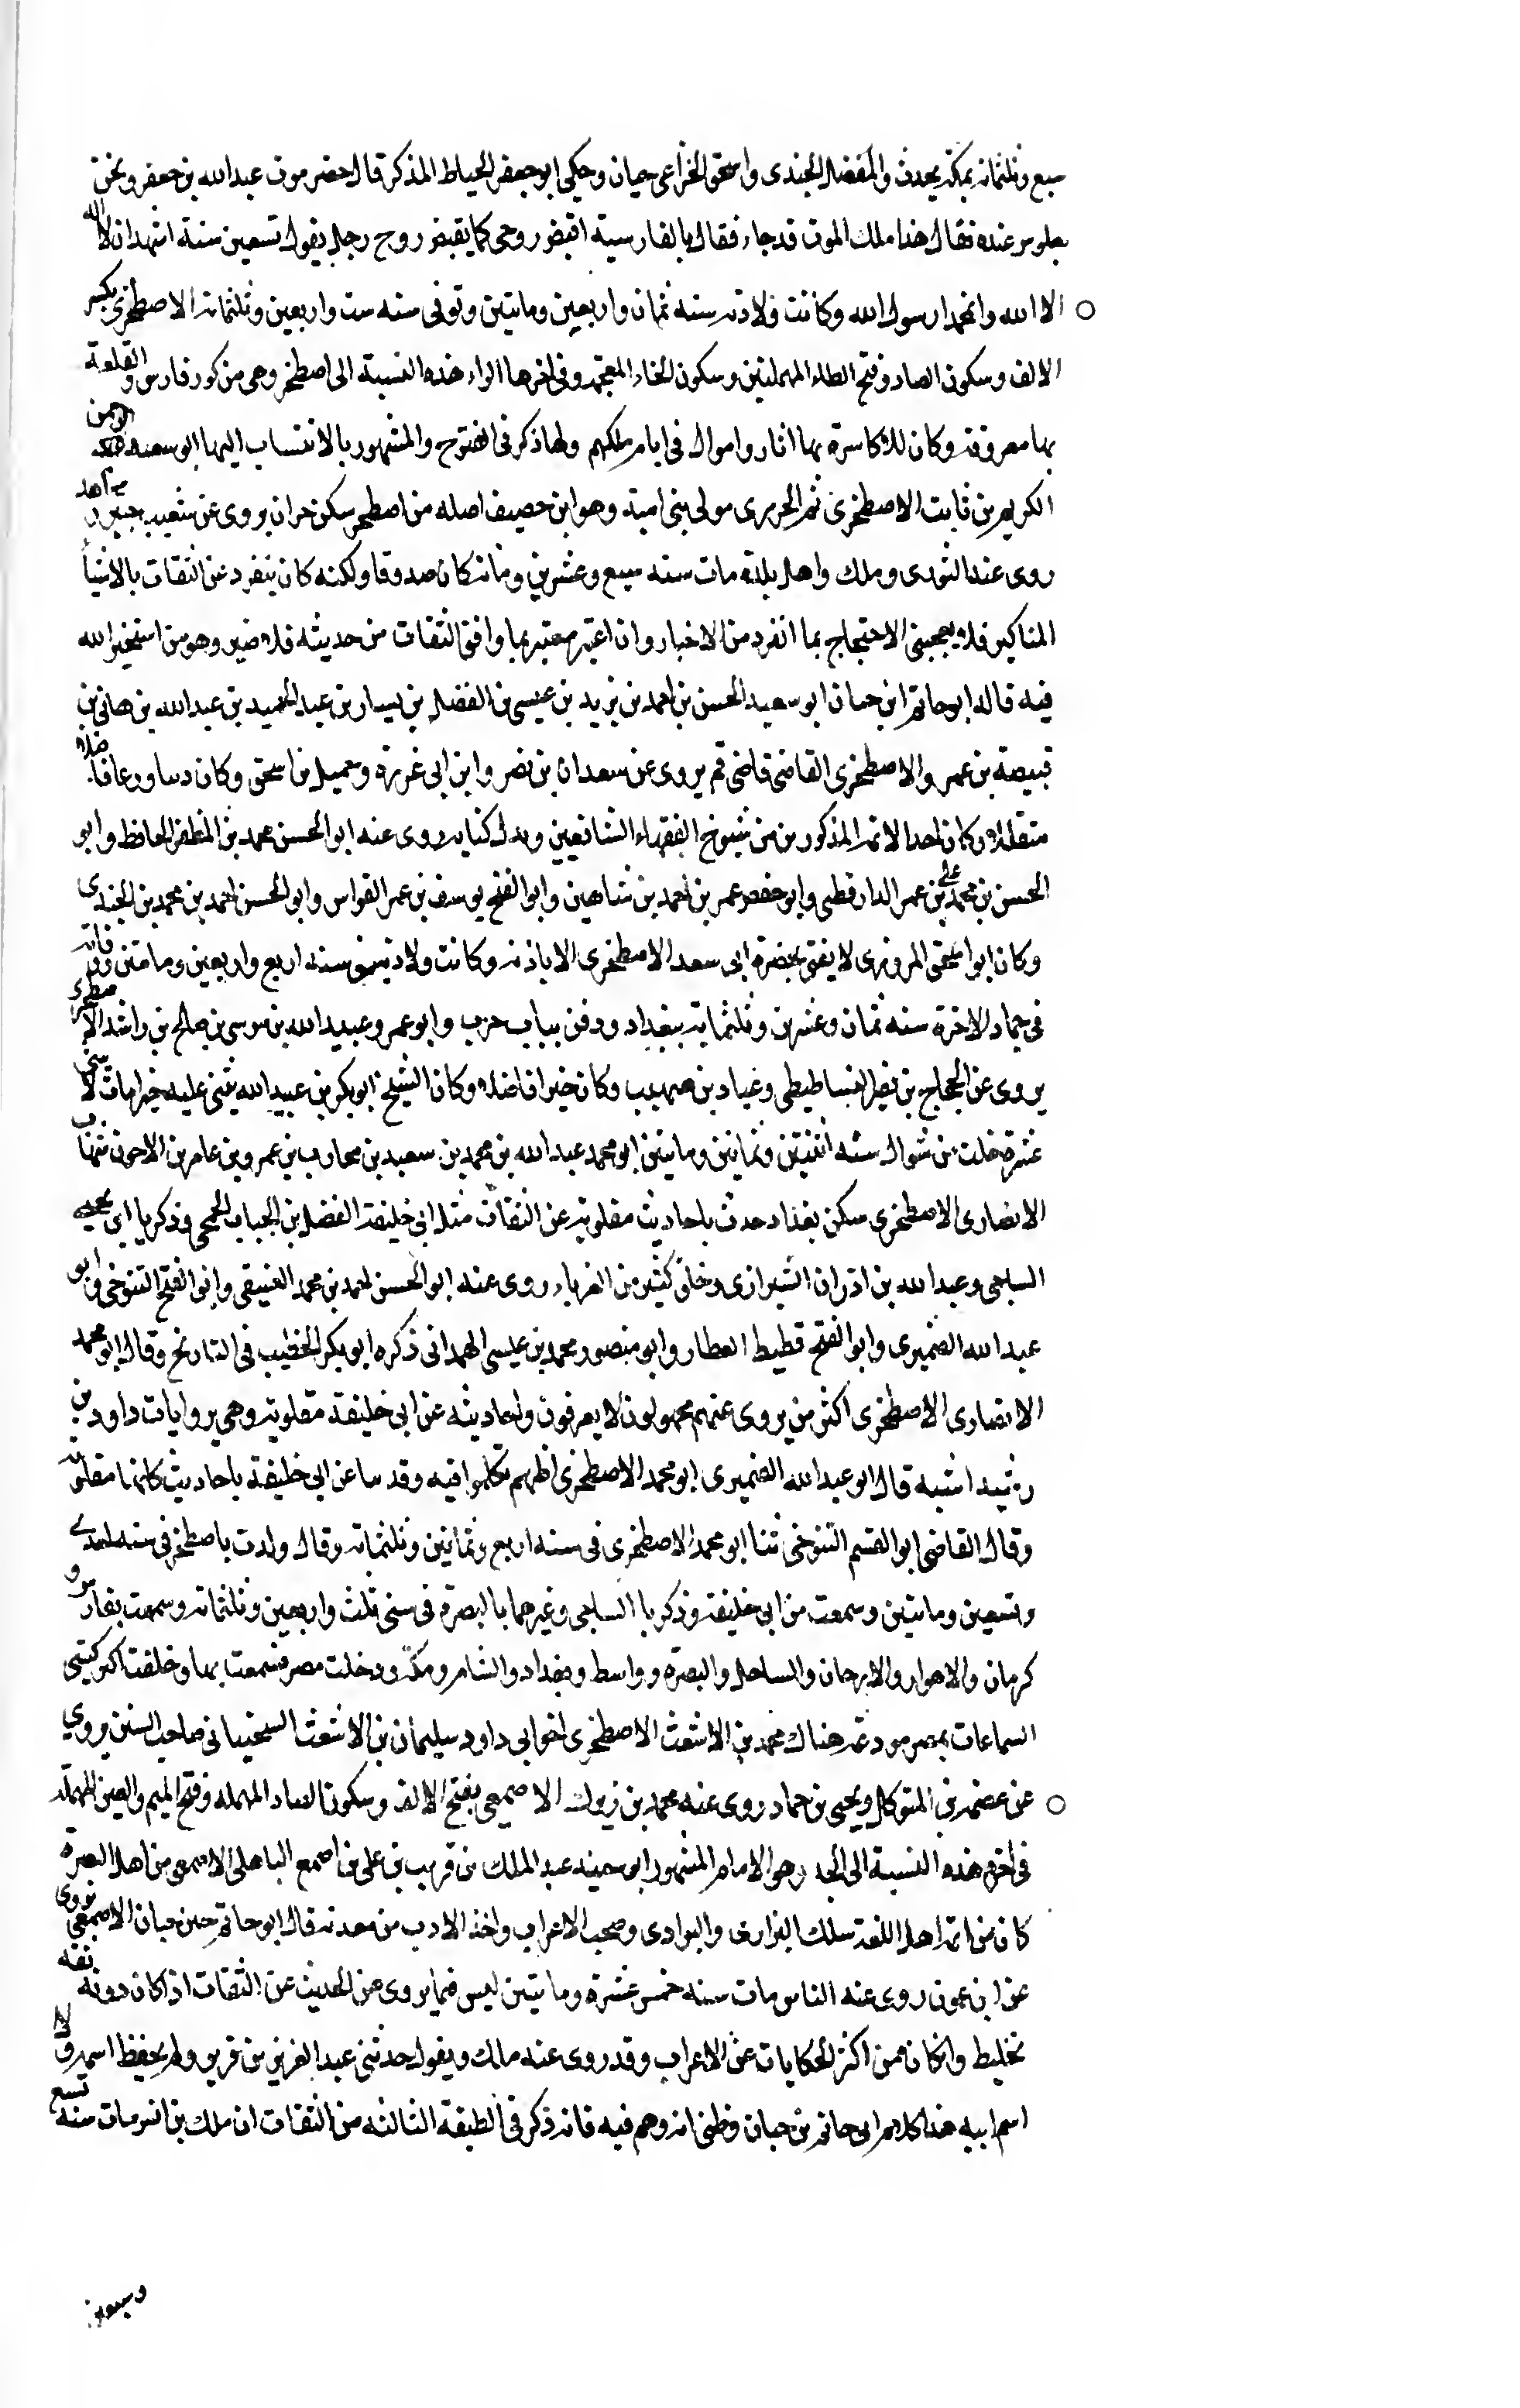 سبع وثلثمائه بمكة يحدث والمفضل الجندى واسحق الخزاعى حيان وحكى ابو جعفر الخياط المذكر قال حضرموت عبد الله بن جعفر ونحن
جلوس عنده فقال هذا ملك الموت قد جاء فقال بالفارسية اقبض روحى كما يقبض روح رجل يقول تسعين سنة اشهد ان لا اله
الا الله وان محمدا رسول الله وكانت ولادته سنه ثمان واربعين وماتين وتوفى سنه ست واربعين وثلثمائه ○ الاصطخرى بكسر
الالف وسكون الصاد وفتح الطاء المهملتين وسكون الخاء المعجمه وفى اخرها الراء هذه النسبة الى اصطخر وهى من كور فارس والقلعة
بها معروفه وكان للاكاسرة بها اثار واموال فى ايام ملكهم ولها ذكر فى الفتوح والمشهور بالانتساب اليها ابو سعيد
الكريم بن ثابت الاصطخرى ثم الجزرى مولى بنى امية وهو ابن خصيف اصله من اصطخر سكن حران يروى عن
روى عنه الثورى وملك واهل بلده مات سنه سبع وعشرين ومائه كان صدوقا ولكنه كان ينفرد عن الثقات بالاشيا
المناكير فلا يعجبنى الاحتجاج بما انفرد من الاخبار وان اعتبر معتبر بما وافق الثقات من حديثه فلا ضير وهو من استخير الله
فيه قاله ابو حاتم ابن حبان ابو سعيد الحسن بن احمد بن يزيد بن عيسى بن الفضل بن يسار بن عبد الحميد بن عبد الله بن هانى بن
قبيصة بن عمرو الاصطخرى القاضى قاضى قم يروى عن سعدان بن نصر وابن ابى غرزة وجميل بن اسحق وكان دينا ورعا فاضلا
متقللا وكان احد الائمه المذكورين من شيوخ الفقهاء الشافعيين وبدل كتابه روى عنه ابو الحسن محمد بن المظفر الحافظ وابو
الحسن بن محمد على بن عمر الدارقطنى وابو حفص عمر بن احمد بن شاهين وابو الفتح يوسف بن عمر القواس وابو الحسن احمد بن محمد بن الجندى
وكان ابو اسحق المروزى لا يفتى بحضرة ابى سعد الاصطخرى الا باذنه وكانت ولادته فى سنه اربع واربعين وماتين
فى جماد الاخرة سنه ثمان وعشرين وثلثمائه ببغداد ودفن بباب حرب وابو عمرو عبيد الله بن موسى بن صالح بن راشد الاصطخرى
يروى عن الحجاج بن نصير الفساطيطى وعباد بن صهيب وكان خيرا فاضلا وكان الشيخ ابو بكر بن عبيد الله يثنى عليه خيرا مات
عشرة خلت من شوال سنه اثنتين وثمانين وماتين ابو محمد عبد الله بن محمد بن سعيد بن محارب بن عمرو بن عامر بن الاحوز
الانصارى الاصطخرى سكن بغداد حدث باحاديث مقلوبه عن الثقات مثل ابى خليفه الفضل بن الحباب الجمحى وزكريا ابى يحيى
الساجى وعبد الله بن اذران الشيرازى وخلق كثير من الغرباء روى عنه ابو الحسن احمد بن محمد العتيقى وابو الفتح التنوخى وابو
عبد الله الصميرى وابو الفتح قطيط العطار وابو منصور محمد بن عيسى الهمدانى ذكره ابو بكر الخطيب فى التاريخ وقال ابو محمد
الانصارى الاصطخرى اكثر من يروى عنهم مجهولون لا يعرفون واحاديثه عن ابى خليفة مقلوبه وهى بروايات داود بن
رشيد اشبه قال ابو عبد الله الصميرى ابو محمد الاصطخرى اظهم تكلموا فيه وقد سا عن ابى خليفة باحاديث كانها مقلوبه
وقال القاضى ابو القسم التنوخى ثنا ابو محمد الاصطخرى فى سنه اربع وثمانين وثلثمائه وقال ولدت باصطخر فى سنه احدى
وتسعين وماتين وسمعت من ابى خليفه وزكريا الساجى وغيرهما بالبصرة فى سنى ثلث واربعين وثلثمائه وسمعت بفارس و
كرمان والاهواز والارجان والساحل والبصرة وواسط وبغداد والشام ومكة ودخلت مصر فسمعت بها وخلفت اكثر كتبى
السماعات بمصر مودعه هناك محمد بن الاشعث الاصطخرى اخو ابى داود سليمان بن الاشعث السجستانى صاحب السنن يروى
عن عصمه بن المتوكل ويحيى بن حماد روى عنه محمد بن زيرك ○ الاصمعى بفتح الالف وسكون الصاد المهمله وفتح الميم والعين المهمله
فى اخره هذه النسبة الى الجد وهو الامام المشهور ابو سعيد عبد الملك بن قريب بن على بن اصمع الباهلى الاصمعى من اهل البصرة
كان من ائمه اهل اللغه سلك البرارى والبوادى وصحب الاعراب واخذ الادب من معدنه قال ابو حاتم بن حبان الاصمعى يروى
عن ابن عون روى عنه الناس مات سنه خمس عشرة وماتين ليس فيما يروى من الحديث عن الثقات اذا كان دونه ثقه
تخليط وان كان ممن اكثر الحكايات عن الاعراب وقد روى عنه مالك ويقول حدثنى عبد العزيز بن قرير ولم يحفظ اسمه ولا
اسم ابيه هذا كلام ابى حاتم بن حبان وظنى انه وهم فيه فانه ذكر فى الطبقة الثالثه من الثقات ان ملك بن انس مات سنه تسع
وسبعين